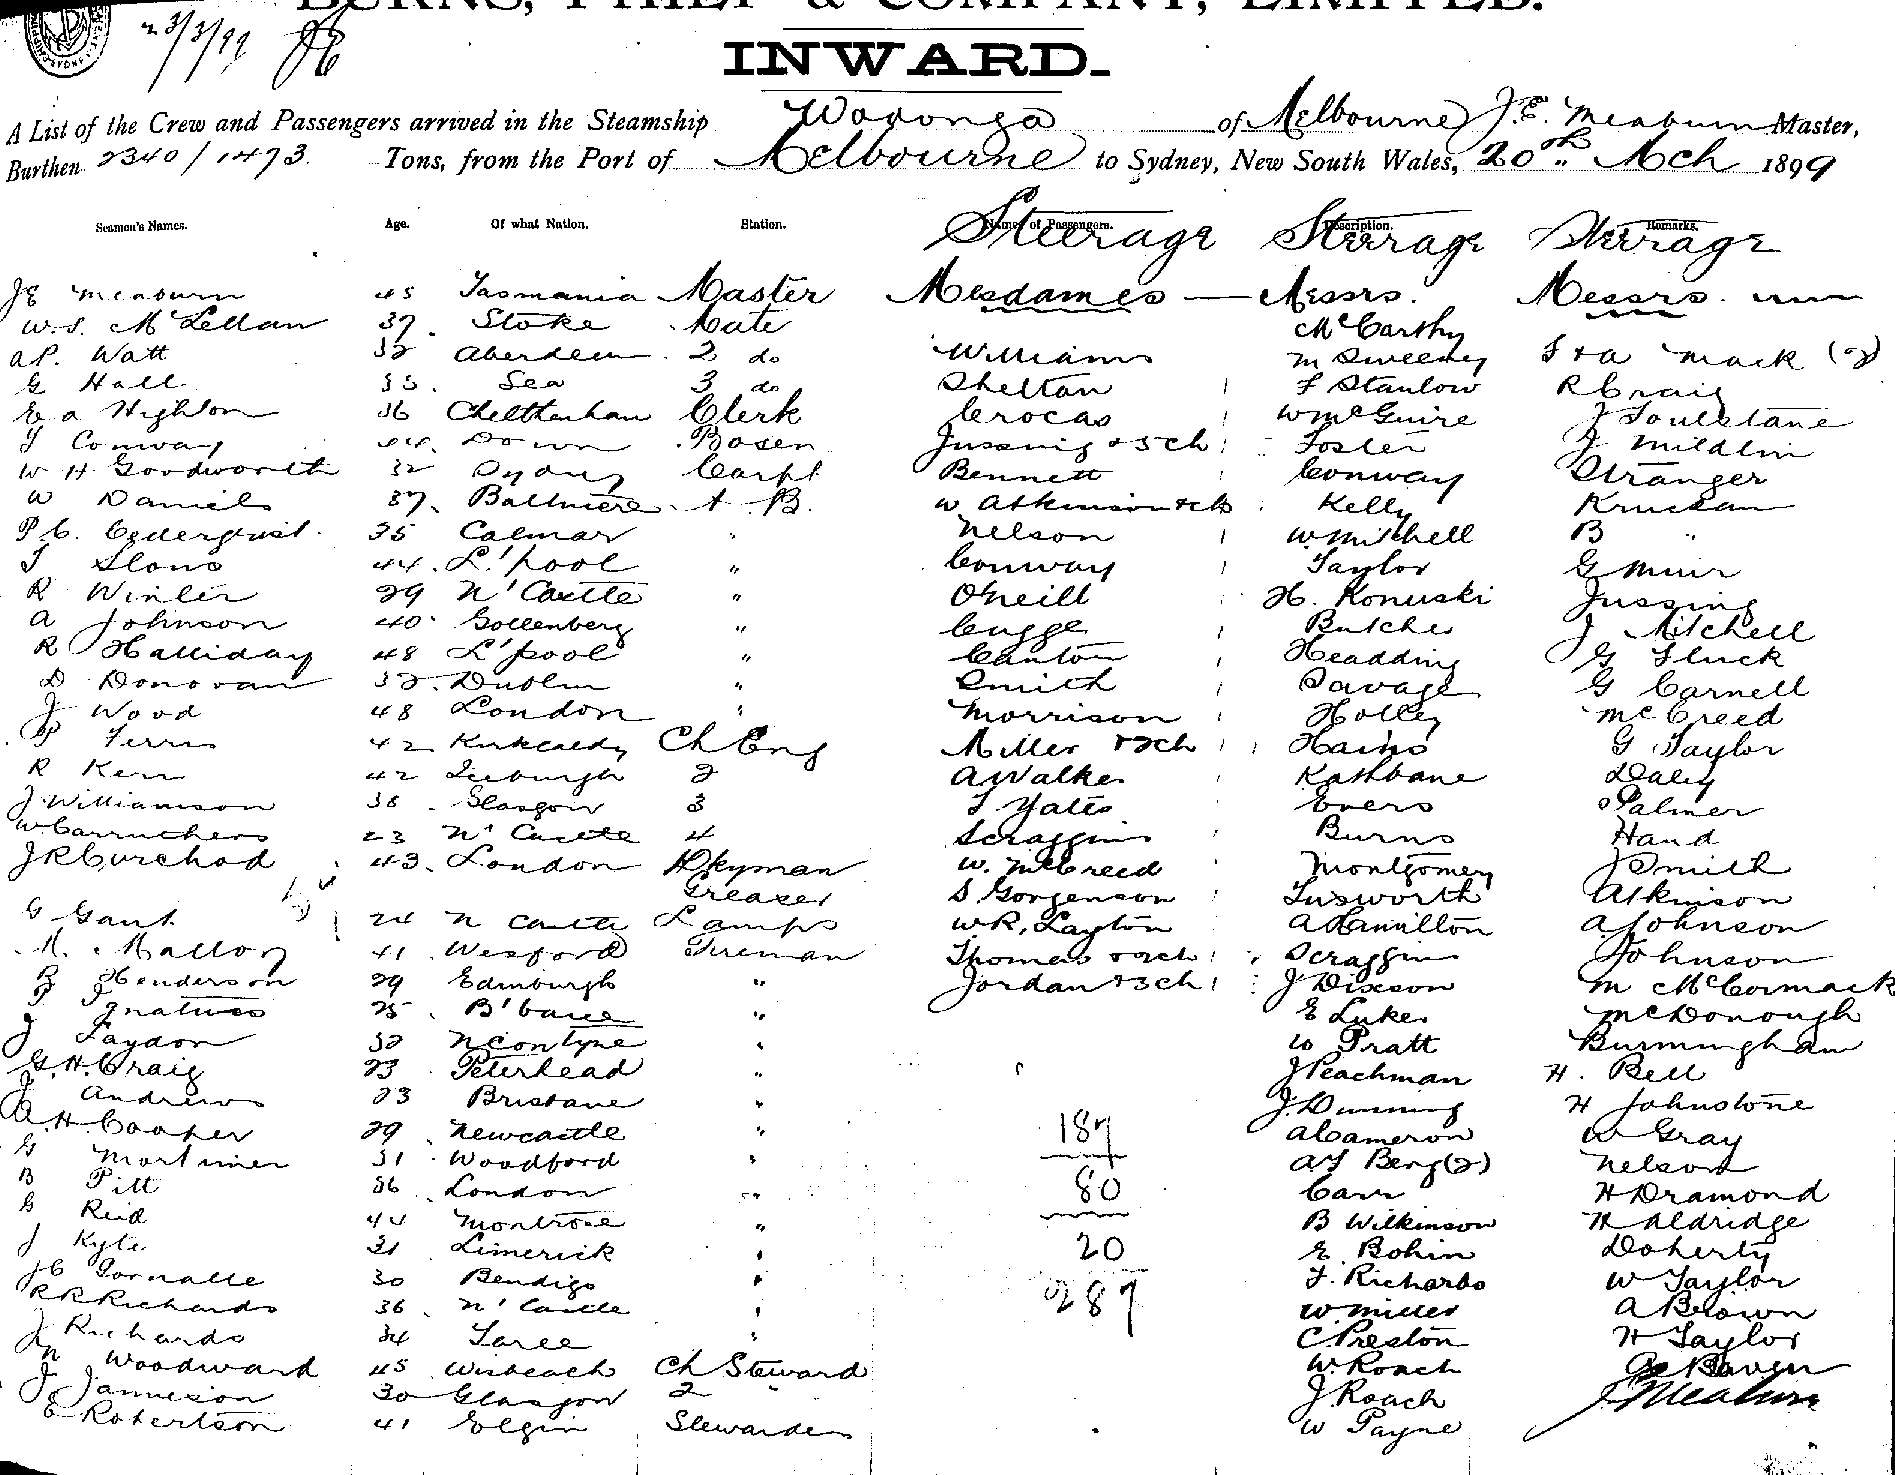 BURNS, PHILP & COMPANY, LIMITED.
23/3/99 JE
INWARD.
A List of the Crew and Passengers arrived in the Steamship Wodonga of Melbourne J.E. Meaburn Master,
Burthen 2340/1473 Tons, from the Port of Melbourne to Sydney, New South Wales, 20th Mch 1899
Seamen's Names. Age. Of what Nation. Station. Names of Passengers. Description. Remarks.
Steerage Steerage Steerage
JE Meaburn 45 Tasmania Master Mesdames — Messrs. Messrs.
W.S. McLellan 37 Stoke Mate McCarthy
AP. Watt 32 Aberdeen 2 do Williams M Sweeney J & A Mack (2)
G Hall 35 Sea 3 do Shelton F Stanlow R Craig
E A Highton 36 Cheltenham Clerk Crocas W McGuire J Toulstane
T Conway 44 Down Bosen Jussing & 5 ch Foster J Mildlin
W H Goodworth 32 Sydney Carpt Bennett Conway Stranger
W Daniels 37 Baltimore A.B. W Atkinson & ch Kelly Krucsan
P C. Cederquist 35 Calmar " Nelson W Mitchell B "
T Slono 44 L'pool " Conway Taylor G Muir
R Winter 29 N'Castle " O'Neill H. Konuski Jussing
A Johnson 40 Gottenberg " Cugge Butcher J Mitchell
R Halliday 48 L'pool " Canton Headding G Fluck
D Donovan 32 Dublin " Smith Savage G Carnell
J Wood 48 London " Morrison Holley McCreed
P Ferris 42 Kirkcaldy Ch Eng Miller & 2 ch Hains G Taylor
R Kerr 42 2 A Walker Rathbane Daley
J Williamson 38 Glasgow 3 T Yates Evers Palmer
W Carruthers 23 N'Castle 4 Scraggins Burns Hand
J R Curchod 43 London Dkyman W. McCreed Montgomery J Smith
Greaser S Gorgenson Tusworth Atkinson
G Gant 24 N Castle Lamps W R. Layton A Hamilton A. Johnson
M. Malloy 41 Wexford Fireman Thomas & 2 ch Scraggins Johnson
B Henderson 29 Edinburgh " Jordan & 3 ch J Dixson M McCormack
P Ignatius 25 B'bane " E Lukes McDonough
J Faydon 32 N C on Tyne " W Pratt Burmingham
G. H. Craig 23 Peterhead " J Peachman H. Bell
J Andrews 23 Brisbane " J. Dunning H Johnstone
A. H. Cooper 29 Newcastle " 187 A Cameron W Gray
G Mortimer 31 Woodford " A J Berg (2) Nelson
B Pitt 36 London " 80 Carr H Dramond
G Reid 44 Montrose " B Wilkinson H Aldridge
J Kyle 31 Limerick " 20 E. Bohin Doherty
J C Tornalle 30 Bendigo " 287 F. Richards W Taylor
R R Richards 36 N'Castle " W. Miller A Brown
J Richards 34 Taree " C. Preston H Taylor
N Woodward 45 Wisbeach Ch Steward W. Roach Baven
J Jamieson 30 Glasgow 2 " J. Roach J Meaburn
E Robertson 41 Elgin Stewardess W Payne